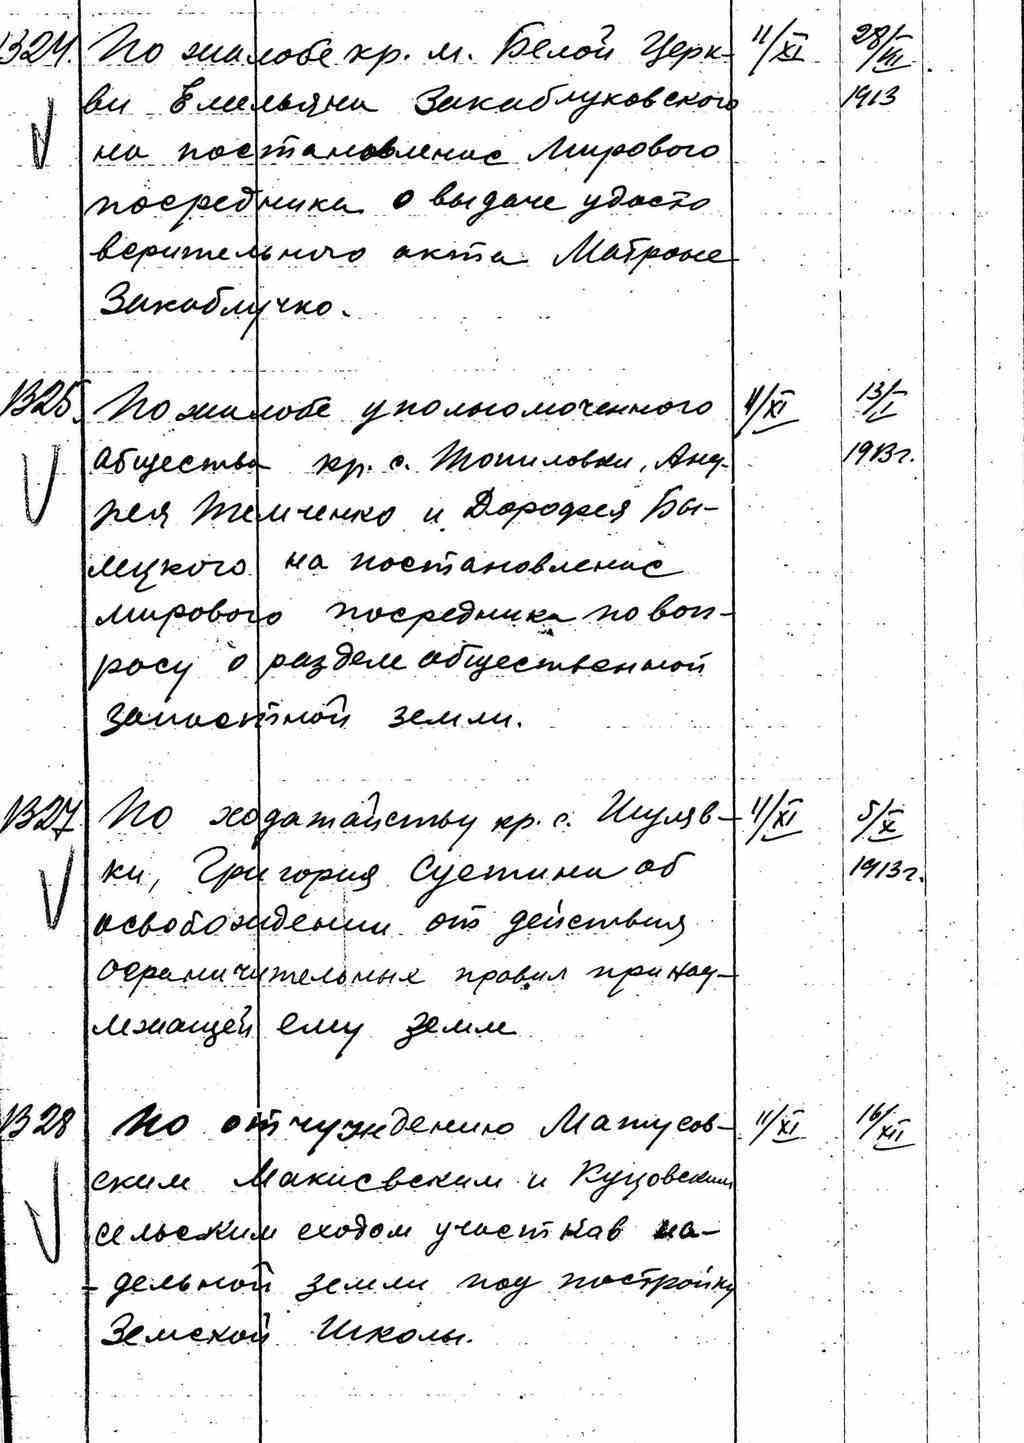 1324. По жалобе кр. м. Белой Церк- 11/XI 28/VIII
ви Емельяна Закаблуковского 1913
на постановление Мирового
посредника о выдаче удосто
верительного акта Матроне
Закаблучко.
1325. По жалобе уполномоченного 11/XI 13/I
общества кр. с. Топиловки, Анд- 1913г.
рея Темченко и Дорофея Бы-
лецкого на постановление
мирового посредника по воп-
росу о разделе общественной
запасной земли.
1327 По ходатайству кр. с. Шуляв- 11/XI 5/X
ки, Григория Суетина об 1913г.
освобождении от действия
ограничительных правил принад-
лежащей ему земле
1328 По отчуждению Матусов- 11/XI 16/XII
ским Макиевским и Куцовским
сельским сходом участков на-
- дельной земли под постройку
Земской Школы.